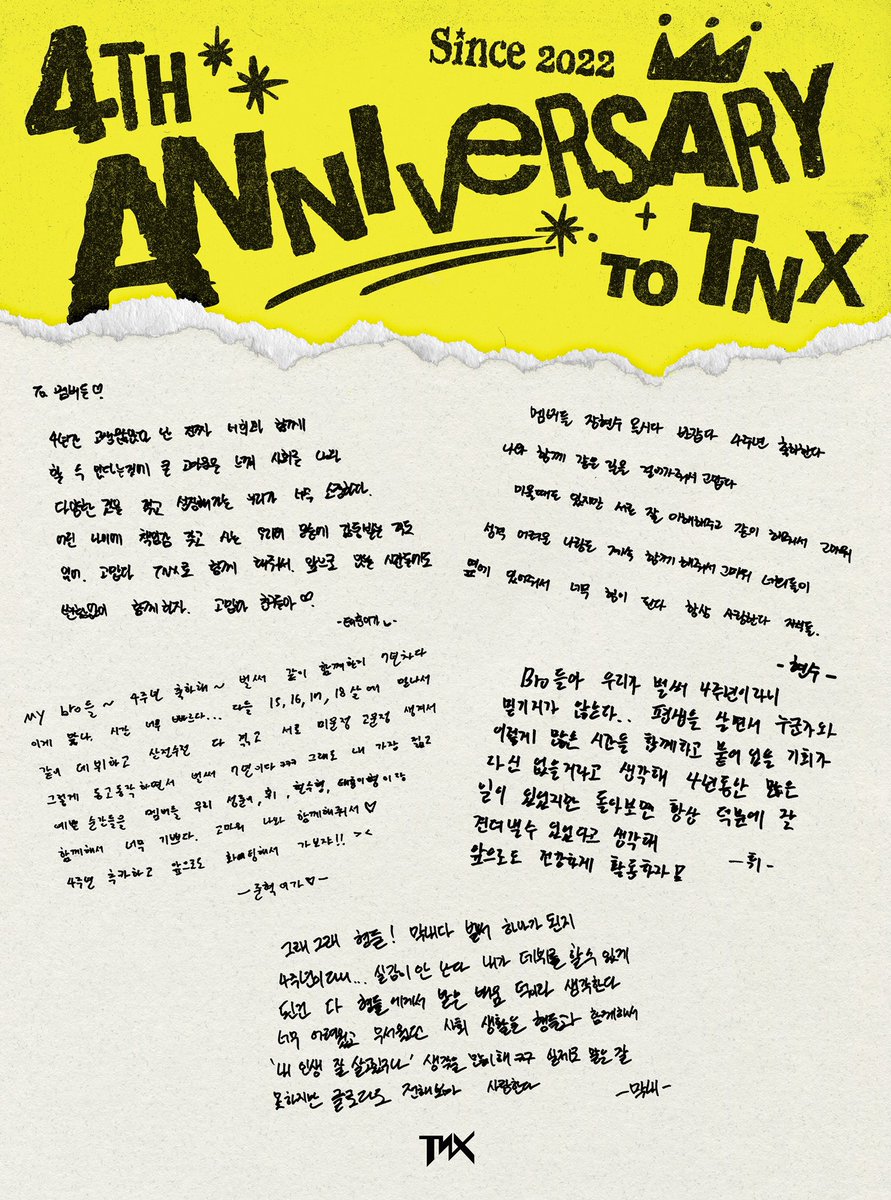 4TH
Since 2022
ANNIVERSARY
TO TNX
To 멤버들♡
4년간 고생많았다 난 진짜 너희와 함께
할 수 있다는것에 큰 고마움을 느껴 사회를 나와
다양한 것을 겪고 성장해가는 우리가 너무 소중하다.
어린 나이에 책임감 갖고 사는 우리의 모습에 감동받는 적도
있어. 고맙다 TNX로 함께 해줘서. 앞으로 멋는 시간들까지도
변함없이 함께하자. 고맙다 얘들아♡
-태훈이가
멤버들 장현수 모시다 반갑다 4주년 축하한다
나와 함께 같은 길을 걸어가줘서 고맙다
미울때도 있지만 서로 잘 이해해주고 같이 해줘서 고마워
성격 어려운 나랑도 계속 함께 해줘서 고마워 너희들이
옆에 있어줘서 너무 힘이 된다 항상 사랑한다 자식들.
-현수-
My bro들~ 4주년 축하해~ 벌써 같이 함께한지 7년차다
이게 맞나.. 시간 너무 빠르다... 다들 15, 16, 17, 18살에 만나서
같이 데뷔하고 산전수전 다 겪고 서로 미운정 고운정 생겨서
그렇게 동고동락하면서 벌써 7년이다ㅋㅋㅋ 그래도 내 가장 젊고
예쁜 순간들을 멤버들 우리 성준이, 휘, 현수형, 태훈이형이랑
함께해서 너무 기쁘다. 고마워 나와 함께해줘서♡
4주년 축하하고 앞으로도 화이팅해서 가보자!! ><
-준혁이가♡-
Bro들아 우리가 벌써 4주년이라니
믿기지가 않는다.. 평생을 살면서 누군가와
이렇게 많은 시간을 함께하고 붙어있을 기회가
다신 없을거라고 생각해 4년동안 많은
일이 있었지만 돌아보면 항상 덕분에 잘
견뎌낼수 있었다고 생각해
앞으로도 건강하게 활동하자
-휘-
그래그래 형들! 막내다 벌써 하나가 된지
4주년이라니... 실감이 안 난다 내가 데뷔를 할수 있게
된건 다 형들에게서 받은 배움 덕이라 생각한다
너무 어려웠고 무서웠던 사회 생활을 형들과 함께해서
'내 인생 잘 살고있구나' 생각을 많이해 ㅋㅋ 실제로 말은 잘
못하지만 글로라도 전해보아 사랑한다
-막내-
TNX